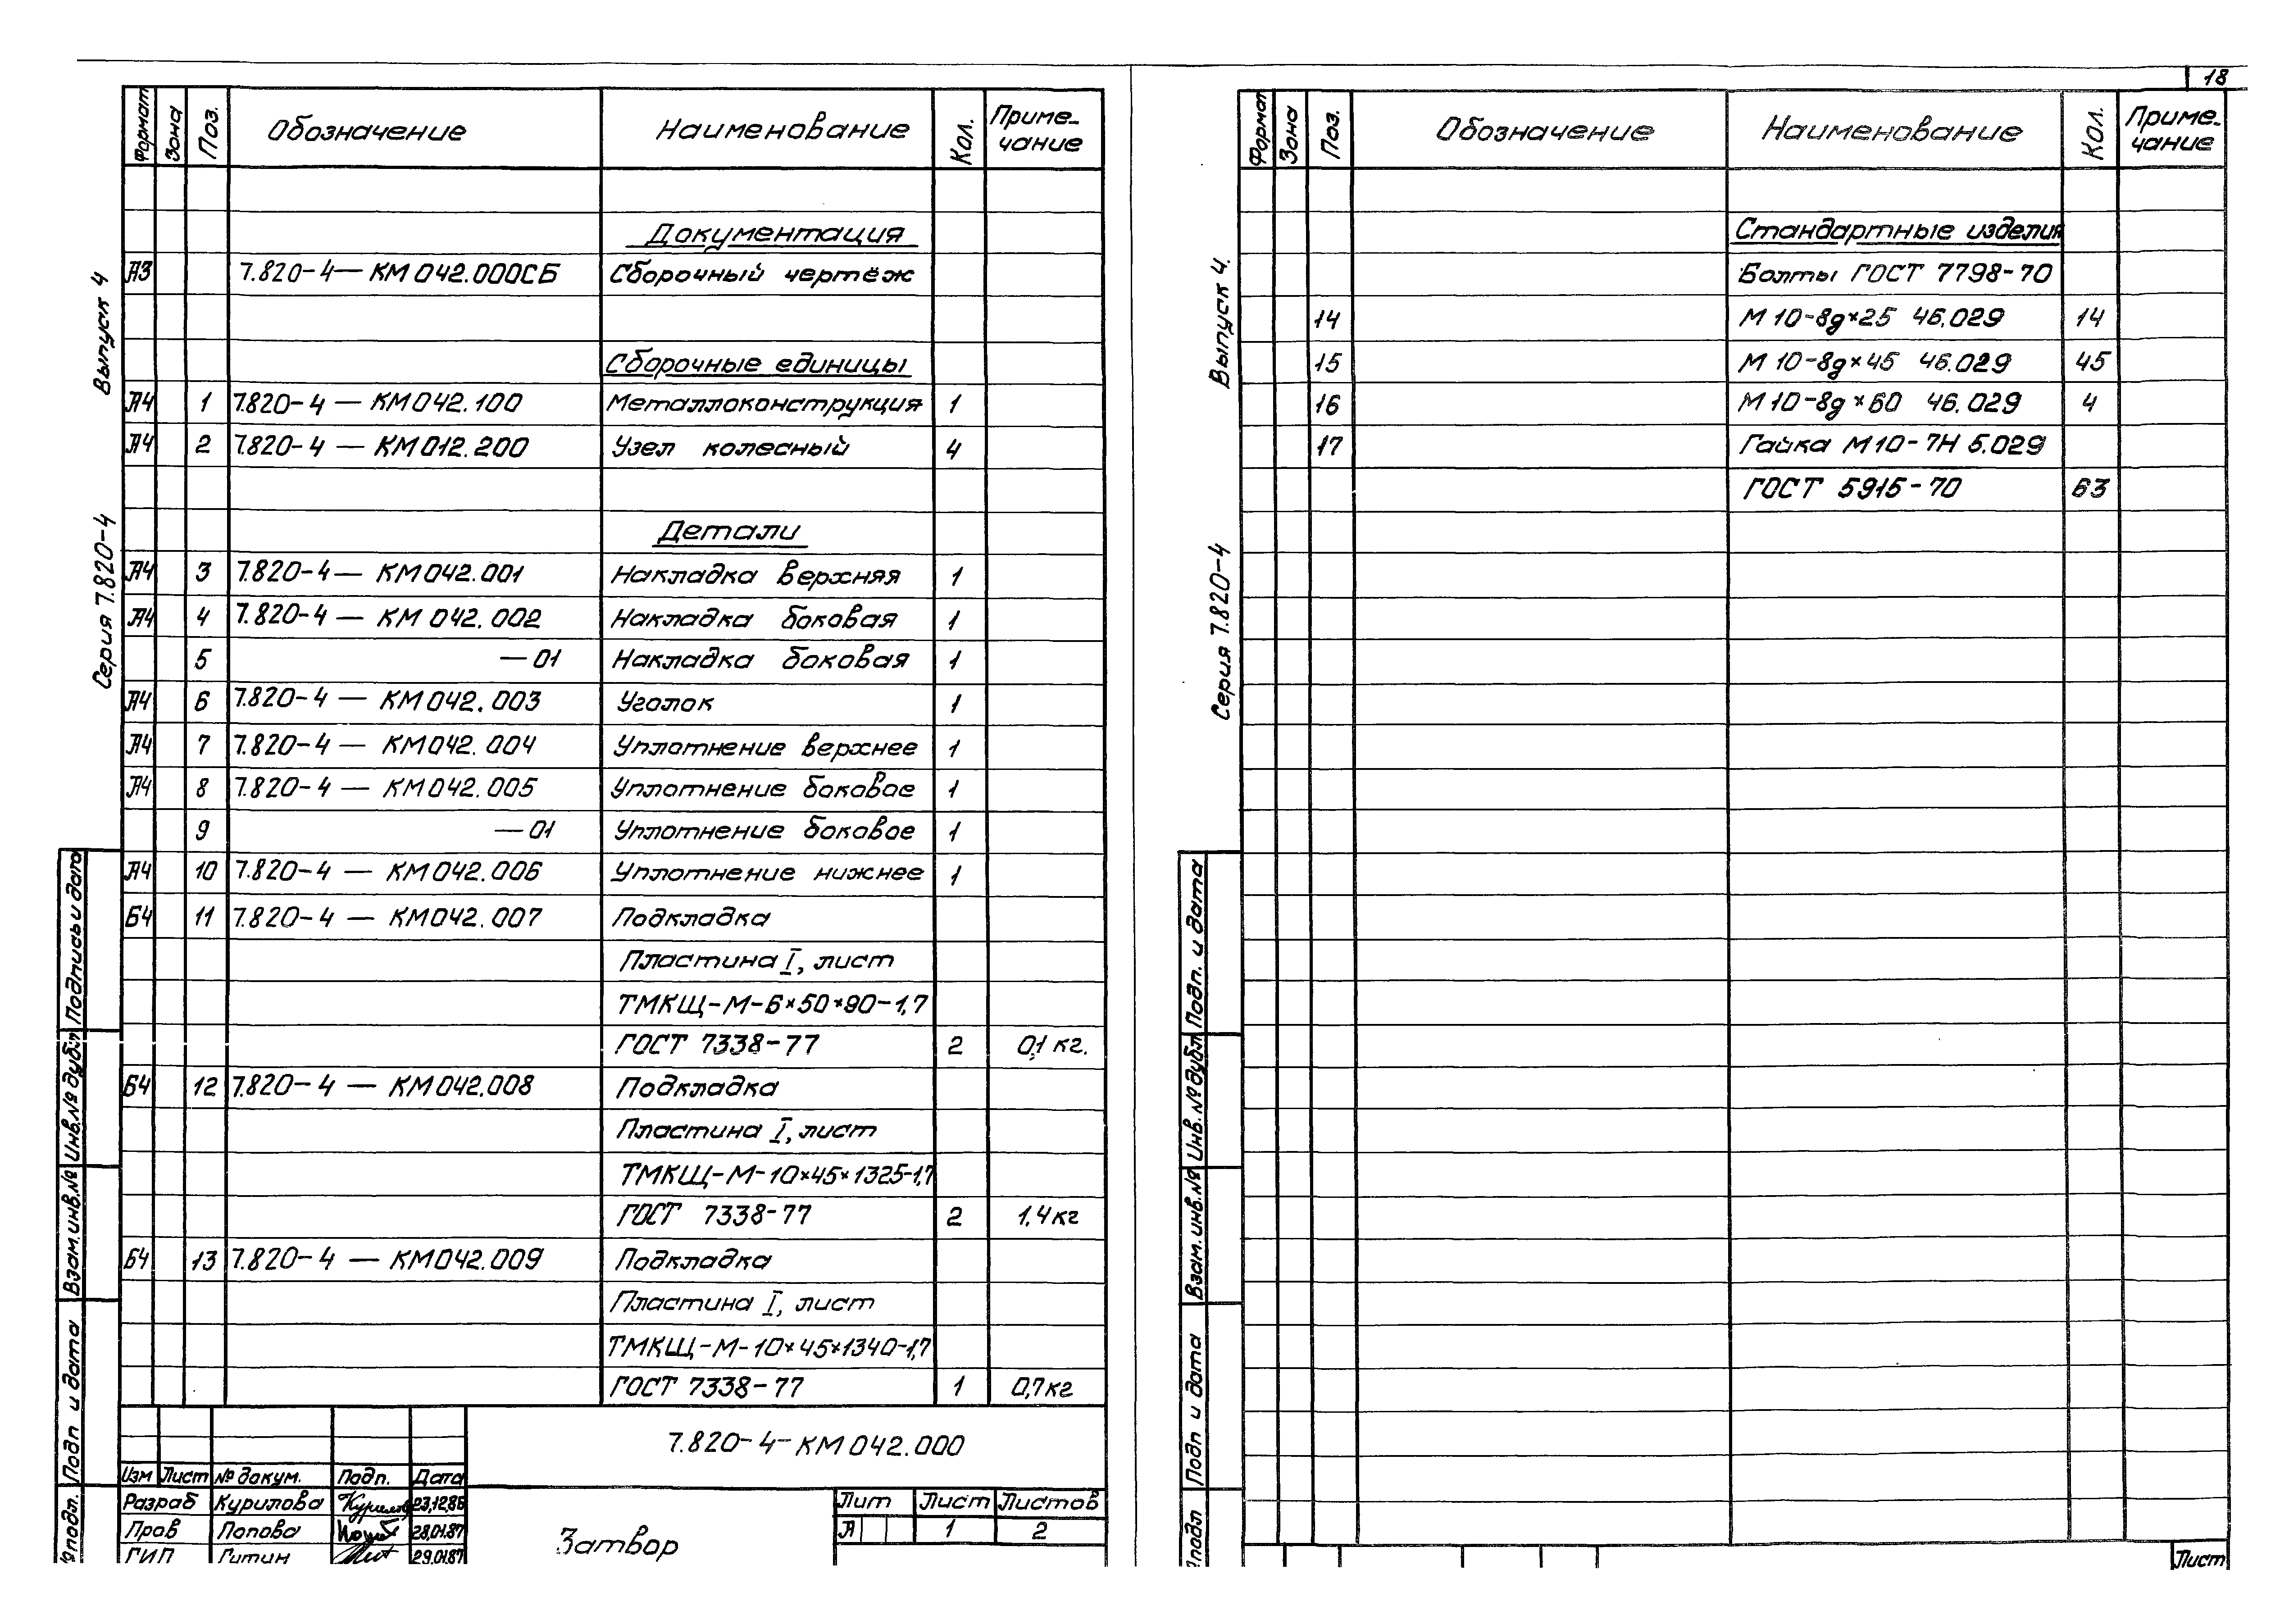 18
Выпуск 4
Серия 7.820-4
Формат Зона Поз. Обозначение Наименование Кол. Приме-
чание
Документация
А3 7.820-4— КМ 042.000СБ Сборочный чертёж
Сборочные единицы
А4 1 7.820-4 — КМ042.100 Металлоконструкция 1
А4 2 7.820-4 — КМ012.200 Узел колесный 4
Детали
А4 3 7.820-4— КМ042.001 Накладка верхняя 1
А4 4 7.820-4 — КМ 042.002 Накладка боковая 1
5 —01 Накладка боковая 1
А4 6 7.820-4 — КМ042.003 Уголок 1
А4 7 7.820-4 — КМ042.004 Уплотнение верхнее 1
А4 8 7.820-4 — КМ042.005 Уплотнение боковое 1
9 —01 Уплотнение боковое 1
А4 10 7.820-4 — КМ042.006 Уплотнение нижнее 1
Б4 11 7.820-4 — КМ042.007 Подкладка
Пластина I, лист
ТМКЩ-М-6×50×90-1,7
ГОСТ 7338-77 2 0,1 кг.
Б4 12 7.820-4 — КМ042.008 Подкладка
Пластина I, лист
ТМКЩ-М-10×45×1325-1,7
ГОСТ 7338-77 2 1,4 кг
Б4 13 7.820-4 — КМ042.009 Подкладка
Пластина I, лист
ТМКЩ-М-10×45×1340-1,7
ГОСТ 7338-77 1 0,7 кг
Подпись и дата
Инв.№ дубл
Взам.инв.№
Подп и дата
№подл.
7.820-4-КМ042.000
Изм Лист № докум. Подп. Дата
Разраб Курилова 23.12.86
Пров Попова 28.01.87
ГИП Гитин 29.01.87
Затвор
Лит Лист Листов
А 1 2
Выпуск 4.
Серия 7.820-4
Формат Зона Поз. Обозначение Наименование Кол. Приме-
чание
Стандартные изделия
Болты ГОСТ 7798-70
14 М 10-8g×25 46.029 14
15 М 10-8g×45 46.029 45
16 М 10-8g×60 46.029 4
17 Гайка М10-7Н 5.029
ГОСТ 5915-70 63
Подп. и дата
Инв.№ дубл
Взам.инв.№
Подп и дата
№подл
Лист